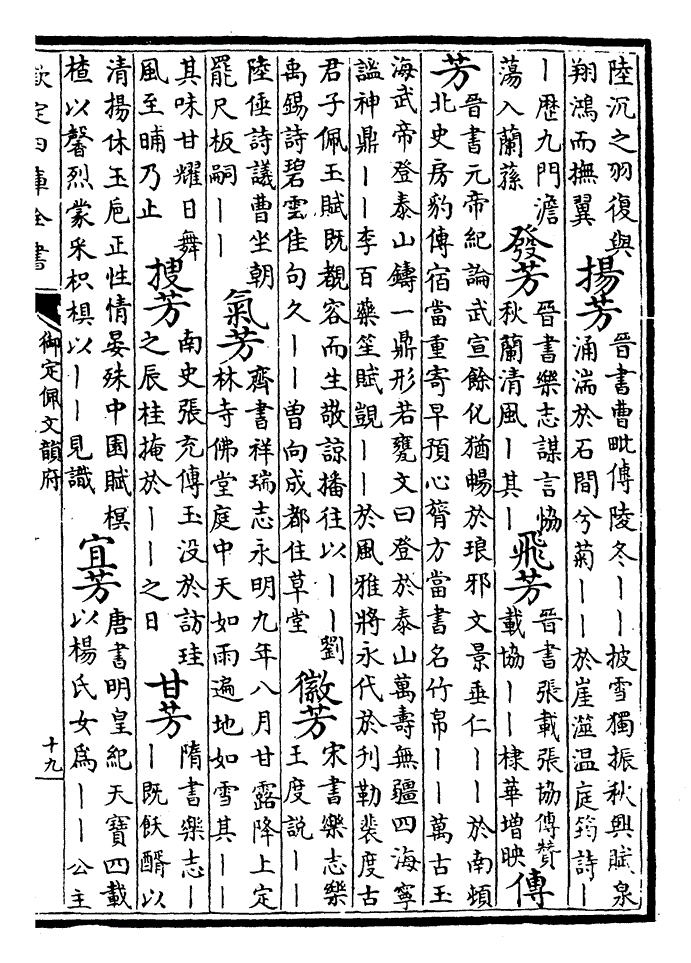 陸沉之羽復與
翔鴻而撫翼
揚芳
晉書曹毗傳陵冬丨丨披雪獨振秋興賦泉
涌湍於石間兮菊丨丨於崖澨温庭筠詩丨
丨歷九門澹
蕩入蘭蓀
發芳
晉書樂志謀言協
秋蘭清風丨其丨
飛芳
晉書張載張協傳贊
載協丨丨棣華增映
傳
芳
晉書元帝紀論武宣餘化猶暢於琅邪文景垂仁丨丨於南頓
北史房豹傳宿當重寄早預心膂方當書名竹帛丨丨萬古玉
海武帝登泰山鑄一鼎形若甕文曰登於泰山萬壽無疆四海寧
謐神鼎丨丨李百藥笙賦覬丨丨於風雅將永代於刋勒裴度古
君子佩玉賦既覩容而生敬諒播往以丨丨劉
禹錫詩碧雲佳句久丨丨曾向成都住草堂
徽芳
宋書樂志樂
王度説丨丨
陸倕詩議曹坐朝
罷尺板嗣丨丨
氣芳
齊書祥瑞志永明九年八月甘露降上定
林寺佛堂庭中天如雨遍地如雪其丨丨
其味甘耀日舞
風至晡乃止
搜芳
南史張充傳玉没於訪珪
之辰桂掩於丨丨之日
甘芳
隋書樂志丨
丨既飫醑以
清揚休玉巵正性情晏殊中園賦榠
楂以馨烈蒙采枳椇以丨丨見識
宜芳
唐書明皇紀天寶四載
以楊氏女爲丨丨公主
欽定四庫全書
御定佩文韻府
十九